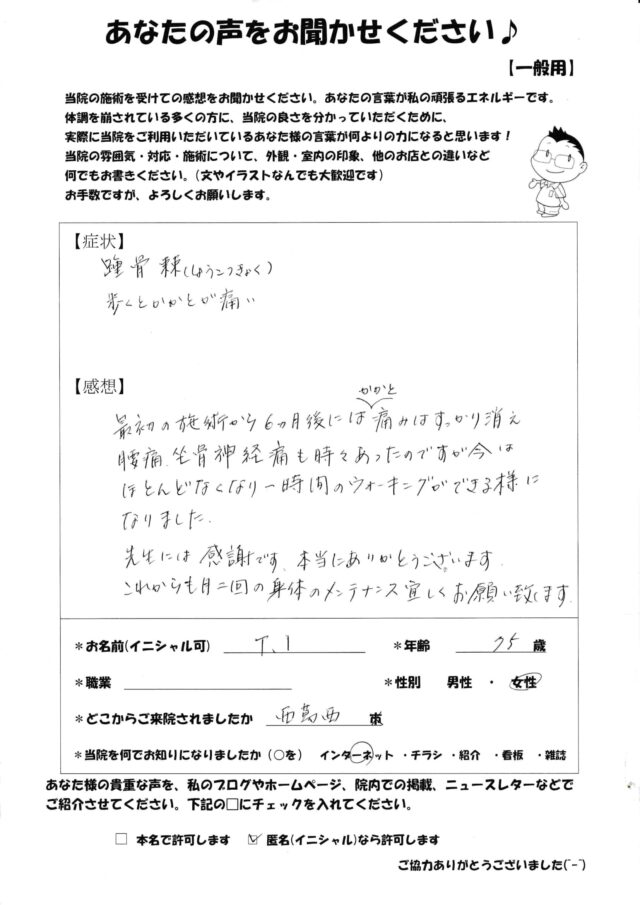 あなたの声をお聞かせください♪
【一般用】
当院の施術を受けての感想をお聞かせください。あなたの言葉が私の頑張るエネルギーです。
体調を崩されている多くの方に、当院の良さを分かっていただくために、
実際に当院をご利用いただいているあなた様の言葉が何よりの力になると思います！
当院の雰囲気・対応・施術について、外観・室内の印象、他のお店との違いなど
何でもお書きください。(文やイラストなんでも大歓迎です)
お手数ですが、よろしくお願いします。
【症状】
踵骨棘(しょうこつきょく)
歩くとかかとが痛い
【感想】
かかと
最初の施術から6ヵ月後には痛みはすっかり消え
腰痛、坐骨神経痛も時々あったのですが今は
ほとんどなくなり一時間のウォーキングができる様に
なりました。
先生には感謝です。本当にありがとうございます。
これからも月二回の身体のメンテナンス宜しくお願い致します。
*お名前(イニシャル可) T.I *年齢 75 歳
*職業 *性別 男性 ・ 女性
*どこからご来院されましたか 西葛西
*当院を何でお知りになりましたか（○を） インターネット ・チラシ ・紹介 ・看板 ・雑誌
あなた様の貴重な声を、私のブログやホームページ、院内での掲載、ニュースレターなどで
ご紹介させてください。下記の□にチェックを入れてください。
□ 本名で許可します ☑ 匿名(イニシャル)なら許可します
ご協力ありがとうございました(^-^)